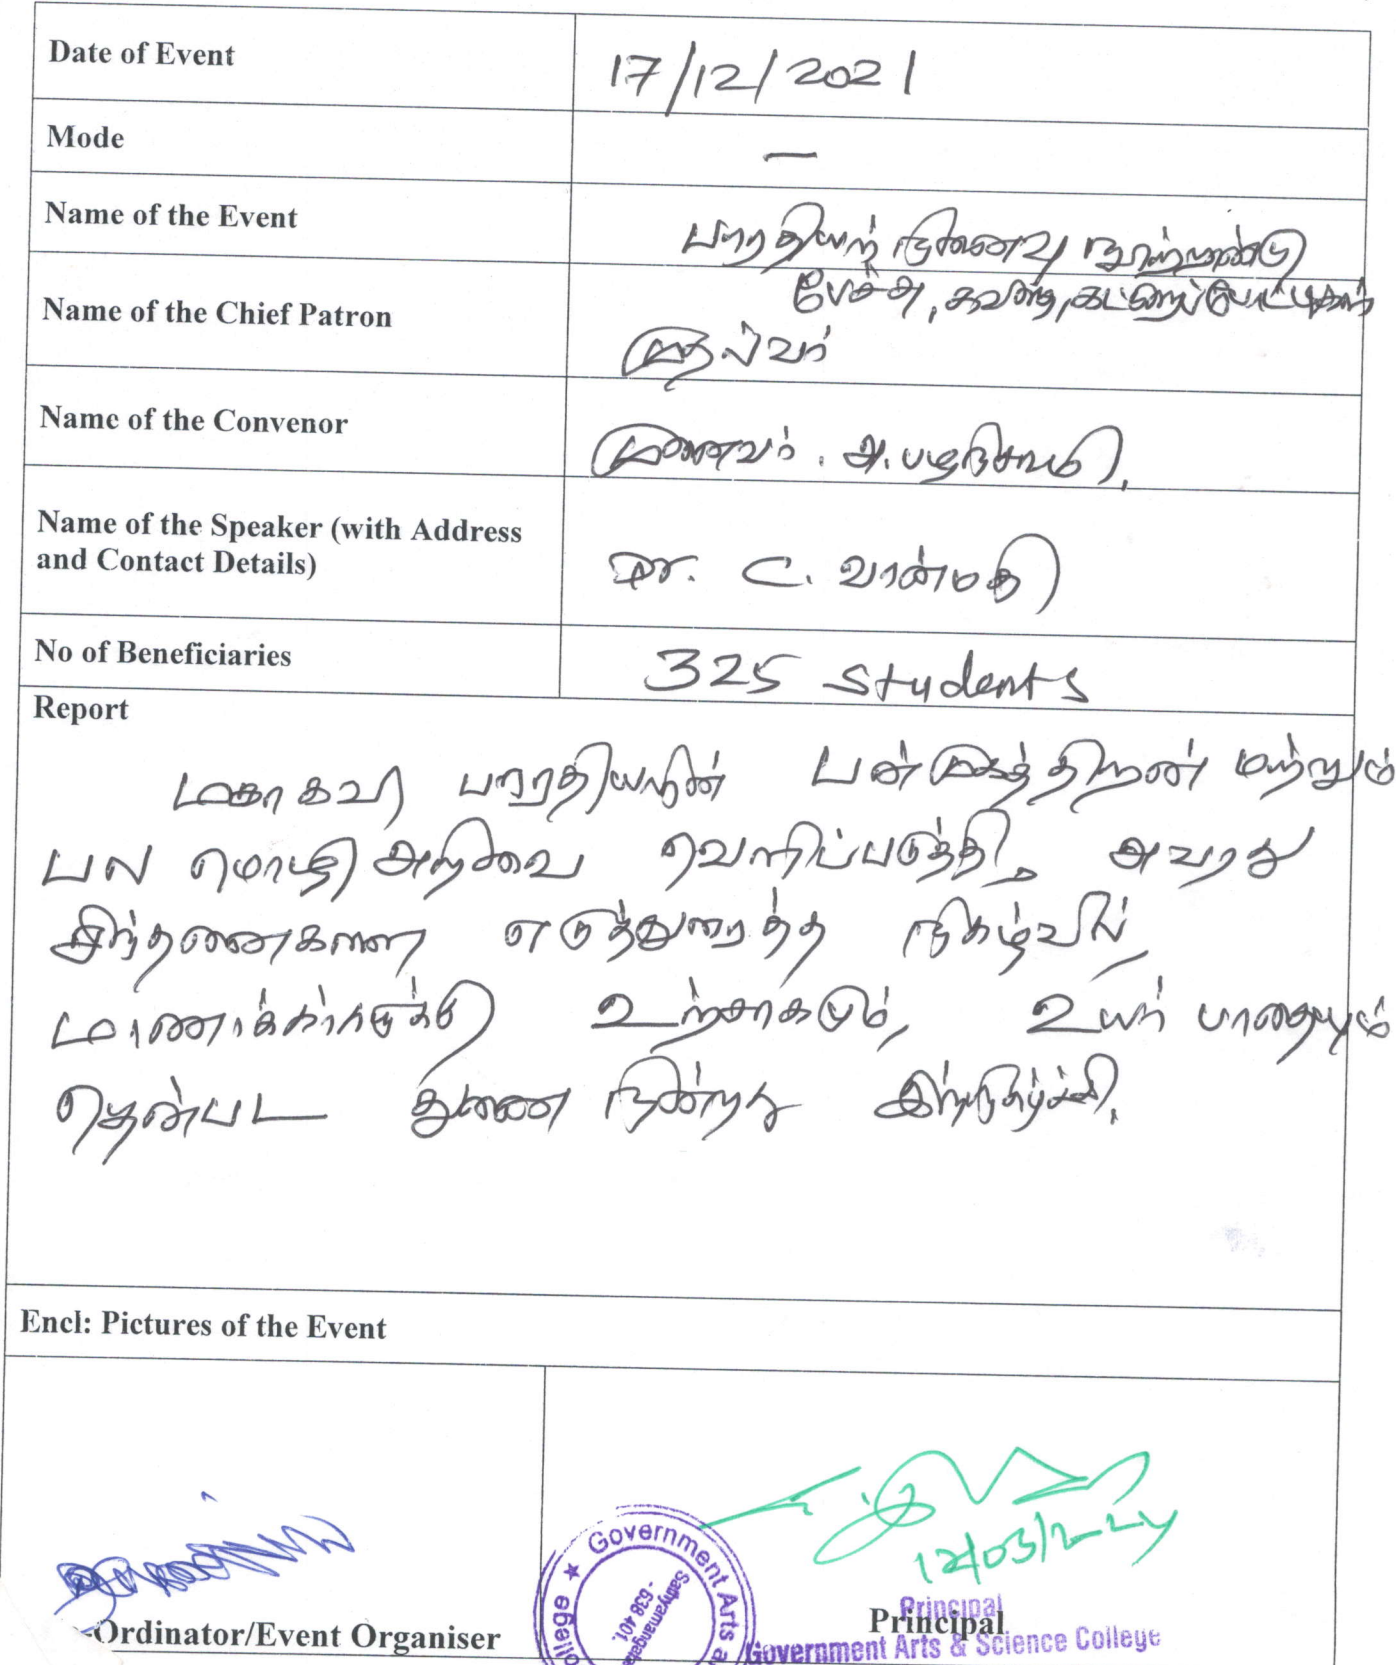 Date of Event 17/12/2021
Mode —
Name of the Event பாரதியார் நினைவு நூற்றாண்டு
பேச்சு, கவிதை, கட்டுரைப் போட்டிகள்
Name of the Chief Patron முதல்வர்
Name of the Convenor முனைவர். அ. பழநிசாமி.
Name of the Speaker (with Address
and Contact Details) Dr. C. வான்மதி
No of Beneficiaries 325 students
Report
மகாகவி பாரதியாரின் பன்முகத்திறன் மற்றும்
பல மொழி அறிவை வெளிப்படுத்தி, அவரது
சிந்தனைகளை எடுத்துரைத்த நிகழ்வில்
மாணாக்கர்களுக்கு உற்சாகமும், உயர் பாதையும்
தென்பட துணை நின்றது இந்நிகழ்ச்சி.
Encl: Pictures of the Event
12/03/2024
-Ordinator/Event Organiser
Principal
Principal
Government Arts & Science College
Government Arts
Sathyamangala
- 638 401.
ollege